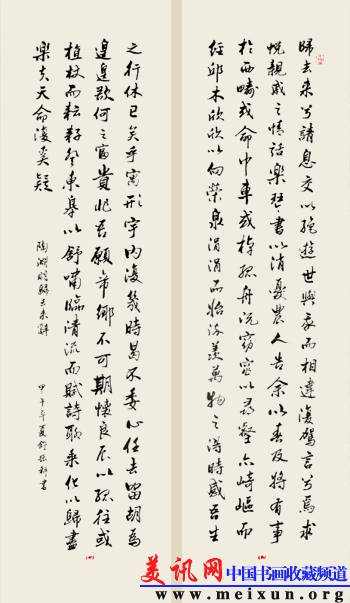 歸去來兮請息交以絕遊世與我而相違復駕言兮焉求
悅親戚之情話樂琴書以消憂農人告余以春及將有事
於西疇或命巾車或棹孤舟既窈窕以尋壑亦崎嶇而
經邱木欣欣以向榮泉涓涓而始流羨萬物之得時感吾生
之行休已矣乎寓形宇內復幾時曷不委心任去留胡為
遑遑欲何之富貴非吾願帝鄉不可期懷良辰以孤往或
植杖而耘耔登東皋以舒嘯臨清流而賦詩聊乘化以歸盡
樂夫天命復奚疑
陶淵明歸去來辭 甲午年夏舒 書
美讯网 中国书画收藏频道
www.meixun.org